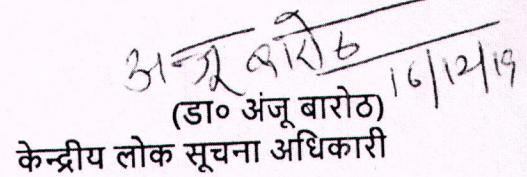 अन्जू बारोठ
16/12/19
(डा० अंजू बारोठ)
केन्द्रीय लोक सूचना अधिकारी